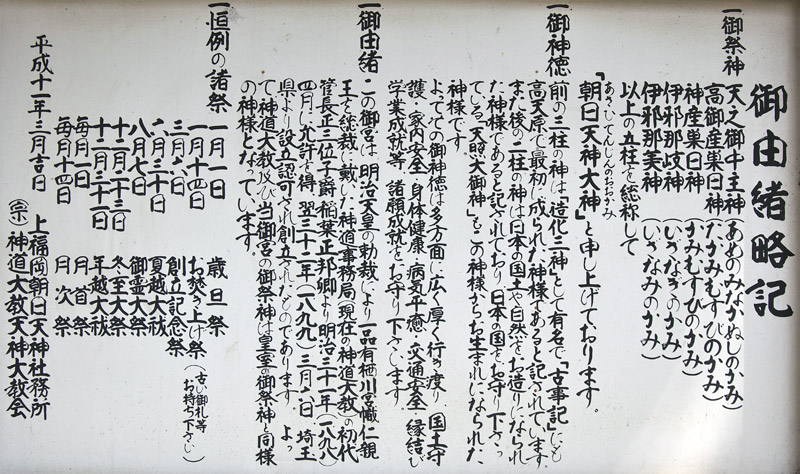 御由緒略記
一御祭神
天之御中主神（あめのみなかぬしのかみ）
高御産巣日神（たかみむすびのかみ）
神産巣日神（かみむすびのかみ）
伊邪那岐神（いざなきのかみ）
伊邪那美神（いざなみのかみ）
以上の五柱を総称して
あさひてんじんのおおかみ
「朝日天神大神」と申し上げております。
一御神徳
前の三柱の神は「造化三神」として有名で「古事記」にも
高天原で最初に成られた神様であると記されています。
また後の二柱の神は日本の国土や自然をお造りになられ
た神様であると記されており、日本の国をお守り下さっ
ている「天照大御神」もこの神様からお生まれになられた
神様です。
よってその御神徳は多方面に広く厚く行き渡り、国土守
護・家内安全・身体健康・病気平癒・交通安全・縁結び
学業成就等、諸願成就をお守り下さいます。
一御由緒
この御宮は、明治天皇の勅裁により一品有栖川宮幟仁親
王を総裁に戴いた神道事務局（現在の神道大教）の初代
管長正三位子爵稲葉正邦卿より、明治三十一年（一八九八）
四月に允許を得、翌三十二年（一八九九）三月六日、埼玉
県より設立認可され創立されたものであります。よっ
て神道大教及び当御宮の御祭神は皇室の御祭神と同様
の神様となっています。
一恒例の諸祭
一月一日　歳旦祭
一月十四日　お焚き上げ祭（古い御札等お持ち下さい）
三月六日　創立記念祭
六月三十日　夏越大祓
八月七日　御霊大祭
十二月二十三日　冬至大祭
十二月三十一日　年越大祓
毎月一日　月首祭
毎月十四日　月次祭
平成十一年三月吉日
上福岡朝日天神社務所
（宗）神道大教天神大教会